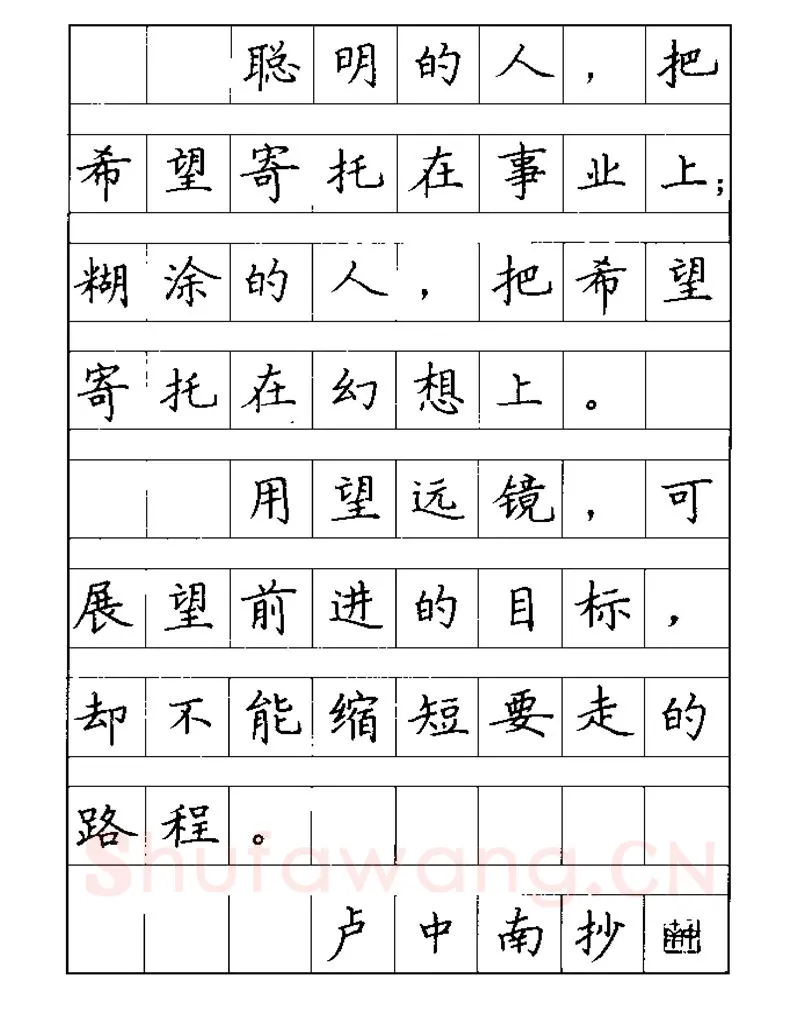 聪明的人，把
希望寄托在事业上；
糊涂的人，把希望
寄托在幻想上。
用望远镜，可
展望前进的目标，
却不能缩短要走的
路程。
Shufawang.CN
卢中南抄